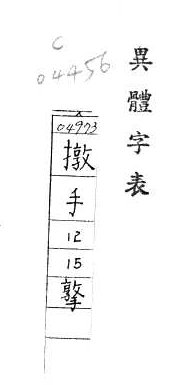 異體字表
C
04456
04973
撴
手
12
15